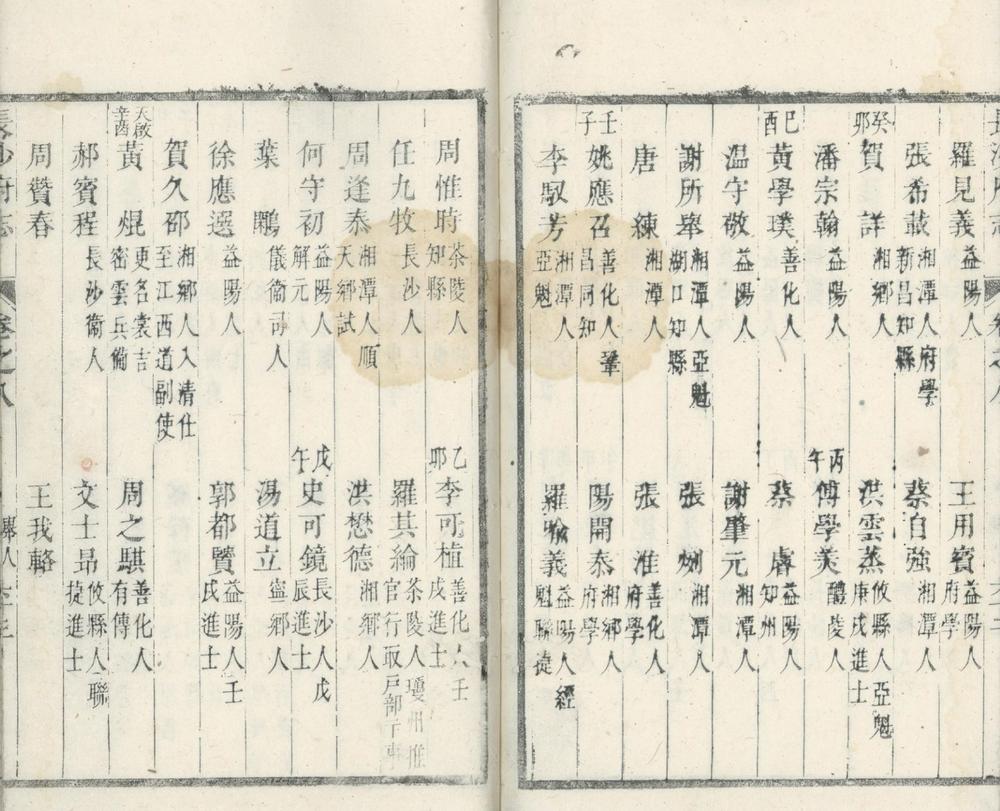 羅見義 益陽人 王用賓 益陽人府學
張希載 湘潭人府學新昌知縣 蔡自強 湘潭人
癸卯 賀詳 湘鄉人 洪雲蒸 攸縣人亞魁庚戌進士
潘宗翰 益陽人 丙午 傅學美 醴陵人
己酉 黃學璞 善化人 蔡膚 益陽人知州
温守敬 益陽人 謝肇元 湘潭人
謝所舉 湘潭人亞魁湖口知縣 張 湘潭人
唐練 湘潭人 張淮 善化人府學
壬子 姚應召 善化人鞏昌同知 陽開泰 湘鄉人府學
李馭芳 湘潭人亞魁 羅喻義 益陽人經魁聯捷
周惟時 茶陵人知縣 乙卯 李可植 善化人壬戌進士
任九牧 長沙人 羅其綸 茶陵人瓊州推官行取戶部主事
周逢泰 湘潭人順天鄉試 洪懋德 湘鄉人
何守初 益陽人解元 戊午 史可鏡 長沙人戊辰進士
葉 儀衛司人 湯道立 寧鄉人
徐應選 益陽人 郭都賢 益陽人壬戌進士
賀久邵 湘鄉人入清仕至江西道副使
天啟辛酉 黃焜 更名裳吉密雲兵備 周之騏 善化人有傳
郝賓程 長沙衛人 文士昂 攸縣人聯捷進士
周贊春 王我輅
長沙府志 卷之八 舉人